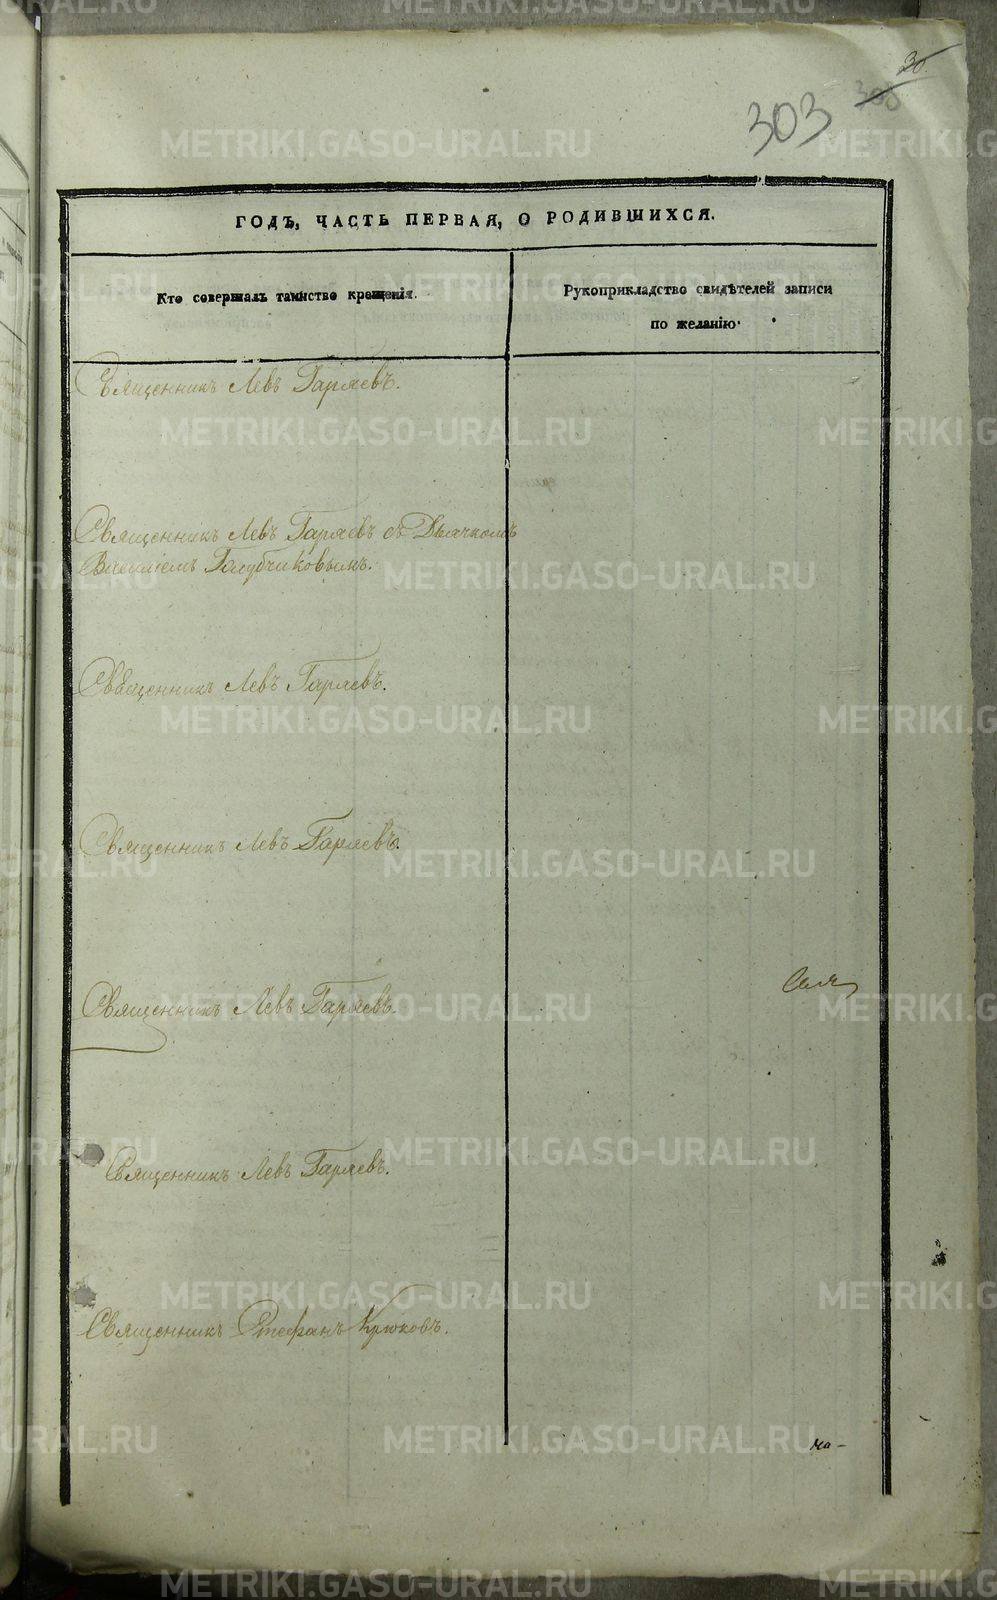 30.
303
303
ГОДЪ, ЧАСТЬ ПЕРВАЯ, О РОДИВШИХСЯ.
Кто совершалъ таинство крещенія.
Рукоприкладство свидѣтелей записи
по желанію.
Священникъ Левъ Гаряевъ.
Священникъ Левъ Гаряевъ съ Дьячкомъ
Василіемъ Голубчиковымъ.
Священникъ Левъ Гаряевъ.
Священникъ Левъ Гаряевъ.
Священникъ Левъ Гаряевъ.
Священникъ Левъ Гаряевъ.
Священникъ Стефанъ Крюковъ.
METRIKI.GASO-URAL.RU